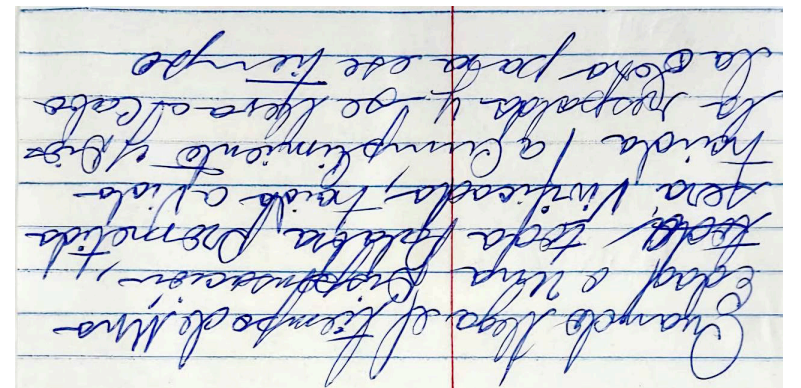 Cuando llega el tiempo de Una
Edad o Una Dispensación,
toda, toda palabra prometida
sera Vivificada, traida a vida
traida a Cumplimiento y Dios
la respalda y se lleva a Cabo
la Obra para ese tiempo